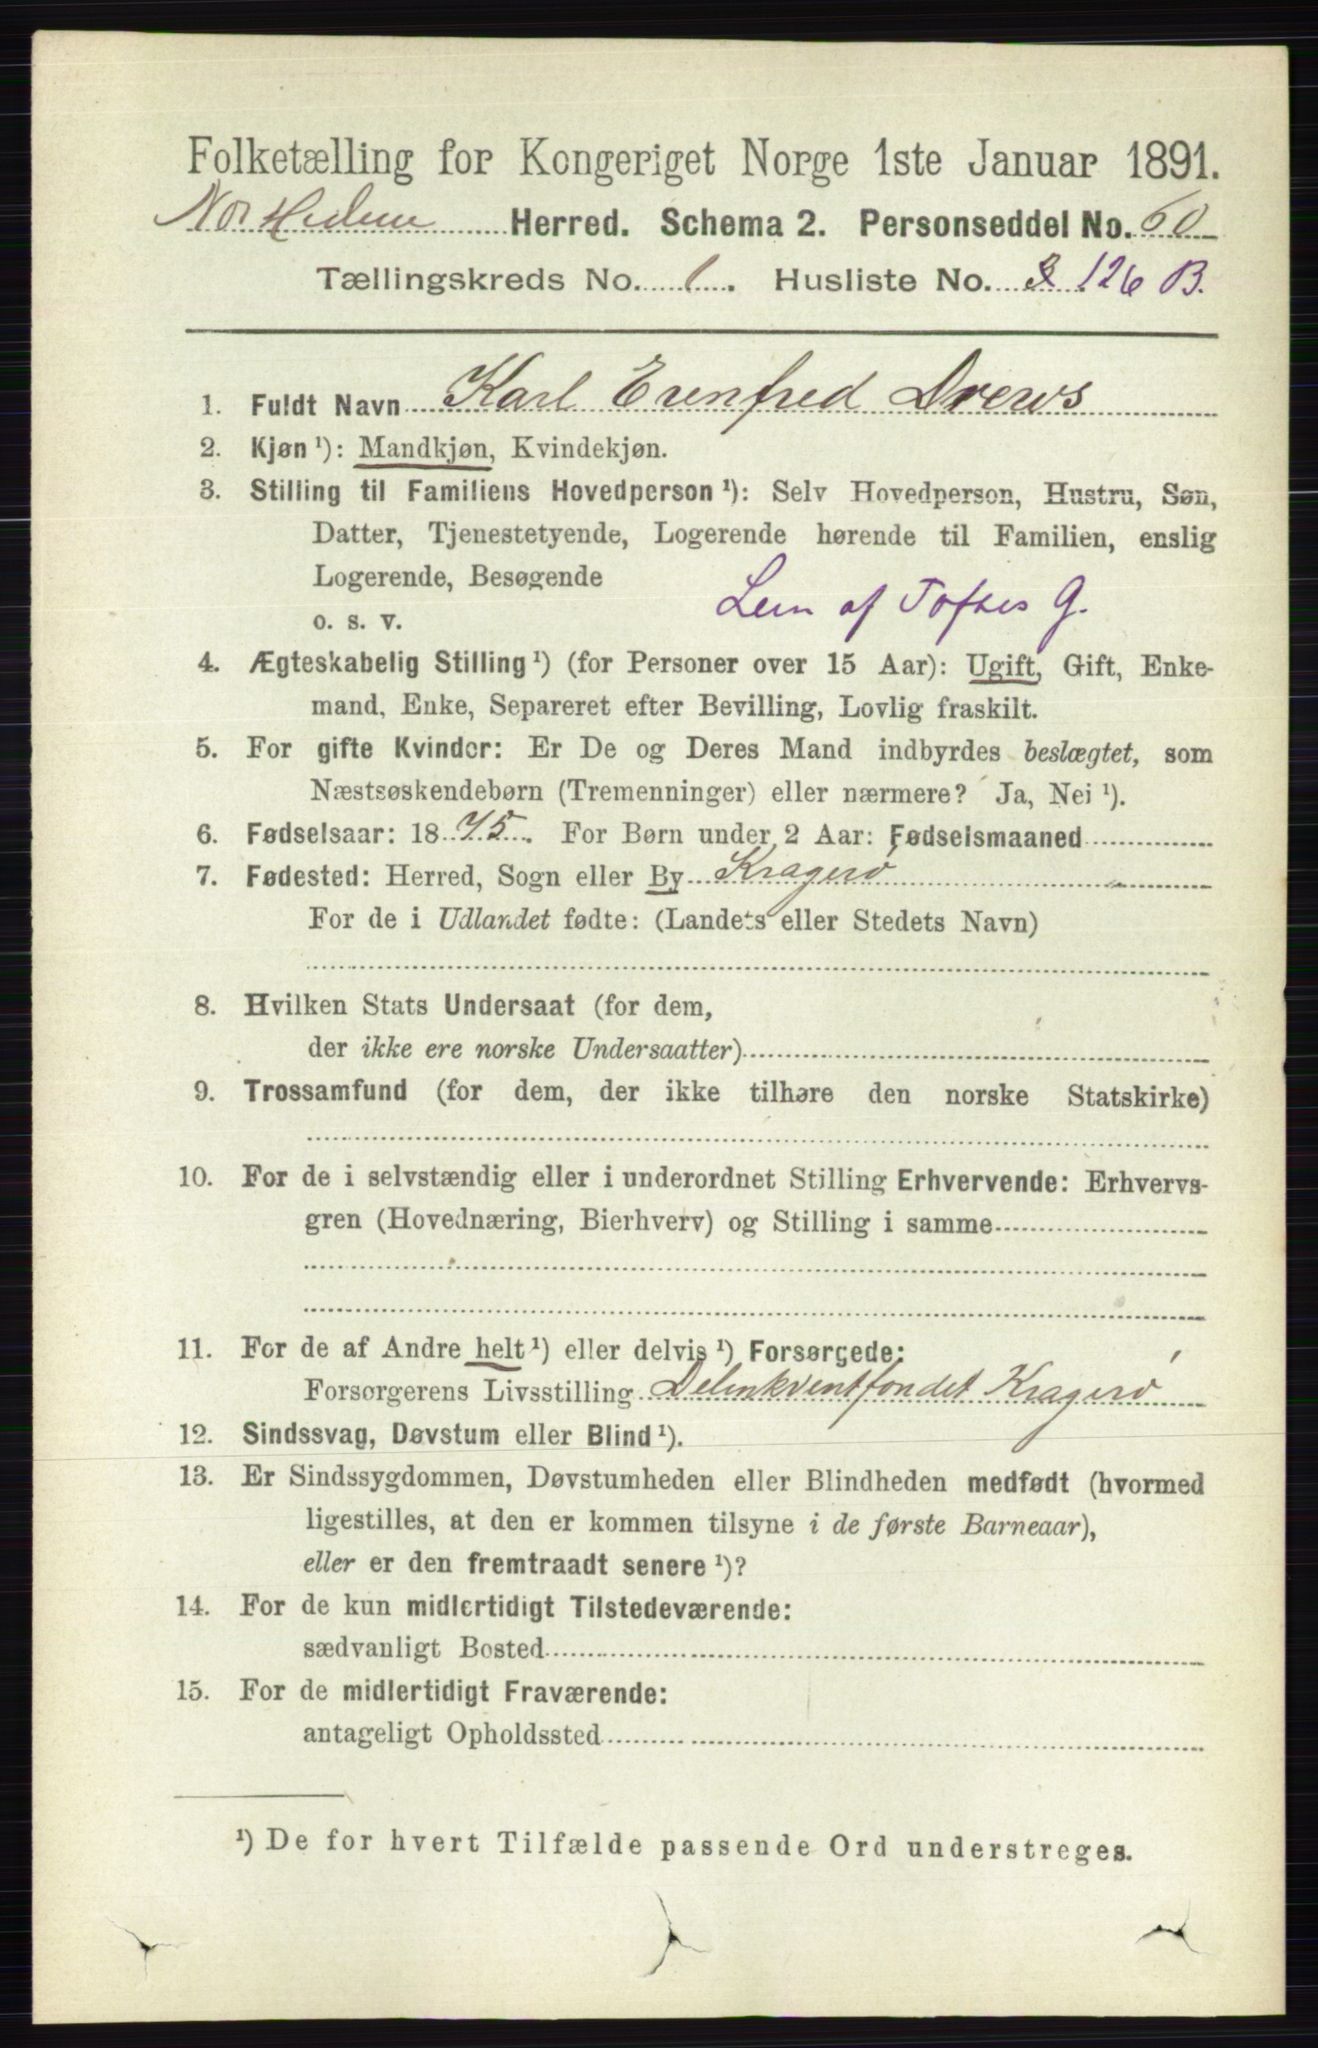 Folketælling for Kongeriget Norge 1ste Januar 1891.
Nor Hedem Herred. Schema 2. Personseddel No. 60
Tællingskreds No. 1. Husliste No. 126 B.
1. Fuldt Navn Karl Erenfred Drews
2. Kjøn ¹): Mandkjøn, Kvindekjøn.
3. Stilling til Familiens Hovedperson ¹): Selv Hovedperson, Hustru, Søn,
Datter, Tjenestetyende, Logerende hørende til Familien, enslig
Logerende, Besøgende
o. s. v. Lem af Toftes G.
4. Ægteskabelig Stilling ¹) (for Personer over 15 Aar): Ugift, Gift, Enke-
mand, Enke, Separeret efter Bevilling, Lovlig fraskilt.
5. For gifte Kvinder: Er De og Deres Mand indbyrdes beslægtet, som
Næstsøskendebørn (Tremenninger) eller nærmere? Ja, Nei ¹).
6. Fødselsaar: 1875. For Børn under 2 Aar: Fødselsmaaned
7. Fødested: Herred, Sogn eller By Kragerø
For de i Udlandet fødte: (Landets eller Stedets Navn)
8. Hvilken Stats Undersaat (for dem,
der ikke ere norske Undersaatter)
9. Trossamfund (for dem, der ikke tilhøre den norske Statskirke)
10. For de i selvstændig eller i underordnet Stilling Erhvervende: Erhvervs-
gren (Hovednæring, Bierhverv) og Stilling i samme
11. For de af Andre helt ¹) eller delvis ¹) Forsørgede:
Forsørgerens Livsstilling Delinkventfondet Kragerø
12. Sindssvag, Døvstum eller Blind ¹).
13. Er Sindssygdommen, Døvstumheden eller Blindheden medfødt (hvormed
ligestilles, at den er kommen tilsyne i de første Barneaar),
eller er den fremtraadt senere ¹)?
14. For de kun midlertidigt Tilstedeværende:
sædvanligt Bosted
15. For de midlertidigt Fraværende:
antageligt Opholdssted
¹) De for hvert Tilfælde passende Ord understreges.